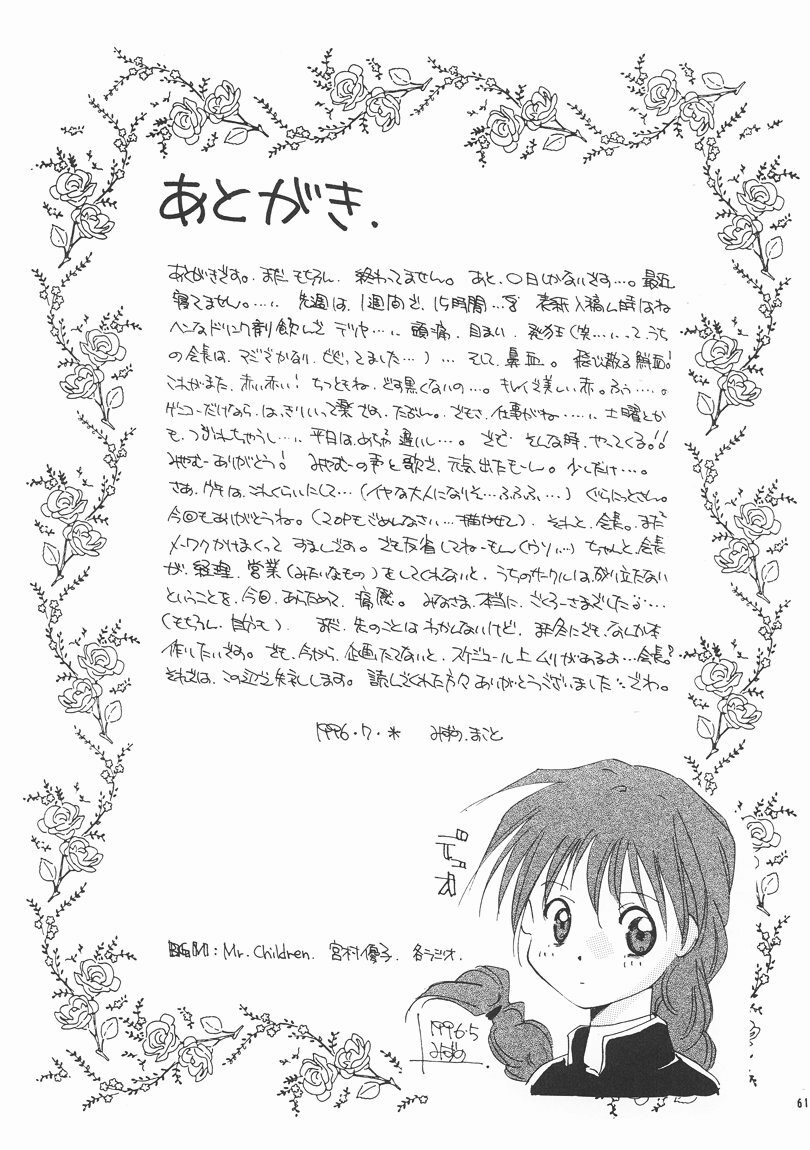 あとがき.
あとがきです。まだ もちろん、終わってません。あと、〇日しかないです…。最近
寝てません。…、先週は、1週間で、15時間…を 表紙入稿ん時はね
ヘンなドリンク剤飲んで デリヤ…、頭痛、目まい、発狂(笑…、って、うち
の会長は、マジでさかない、とどってました…)… そして、鼻血。飛び散る鮮血!
これがまた、赤い赤い! ちっともね、どす黒くないの…。キレイで美しい赤。ふぅ…。
ゲンコーだけなら、はっきりいって楽です、たぶん。でもさ、仕事がね…、土曜とか
も、つぶれちゃうし…、平日は、めちゃ遅いし…。さて、そんな時、やってくる!!
みやむーありがとう! みやむーの声と歌で、元気出たもーん。少しだけ…。
さあ、グチは、これくらいにして…(イヤな大人になりそ…ふふふ…)ぐらにっとさん。
今回もありがとうね。(2Pもごめんなさい…描かせて)、それと、会長。まだ
メーワクかけまくってすましです。でも反省してねーもん(ウソ…)ちゃんと会長
が、経理、営業(みたいなもの)をしてくれないと、うちのサークルは、成り立たない
ということを、今回、あらためて、痛感。みなさま、本当に、ごくろーさまでした…
(もちろん、自分も)、まだ、先のことはわかんないけど、また冬にでも、なんか本
作りたいです。でも、今から、企画たてないと、スケジュール上ムリがあるよ…会長?
それでは、この辺で失礼します。読んでくれた方々ありがとうございました∵でわ。
1996.7.* みずの.まこと
デヘオ
BGM: Mr.Children. 宮村優子. 各ラジオ.
1996.5
みずの
61